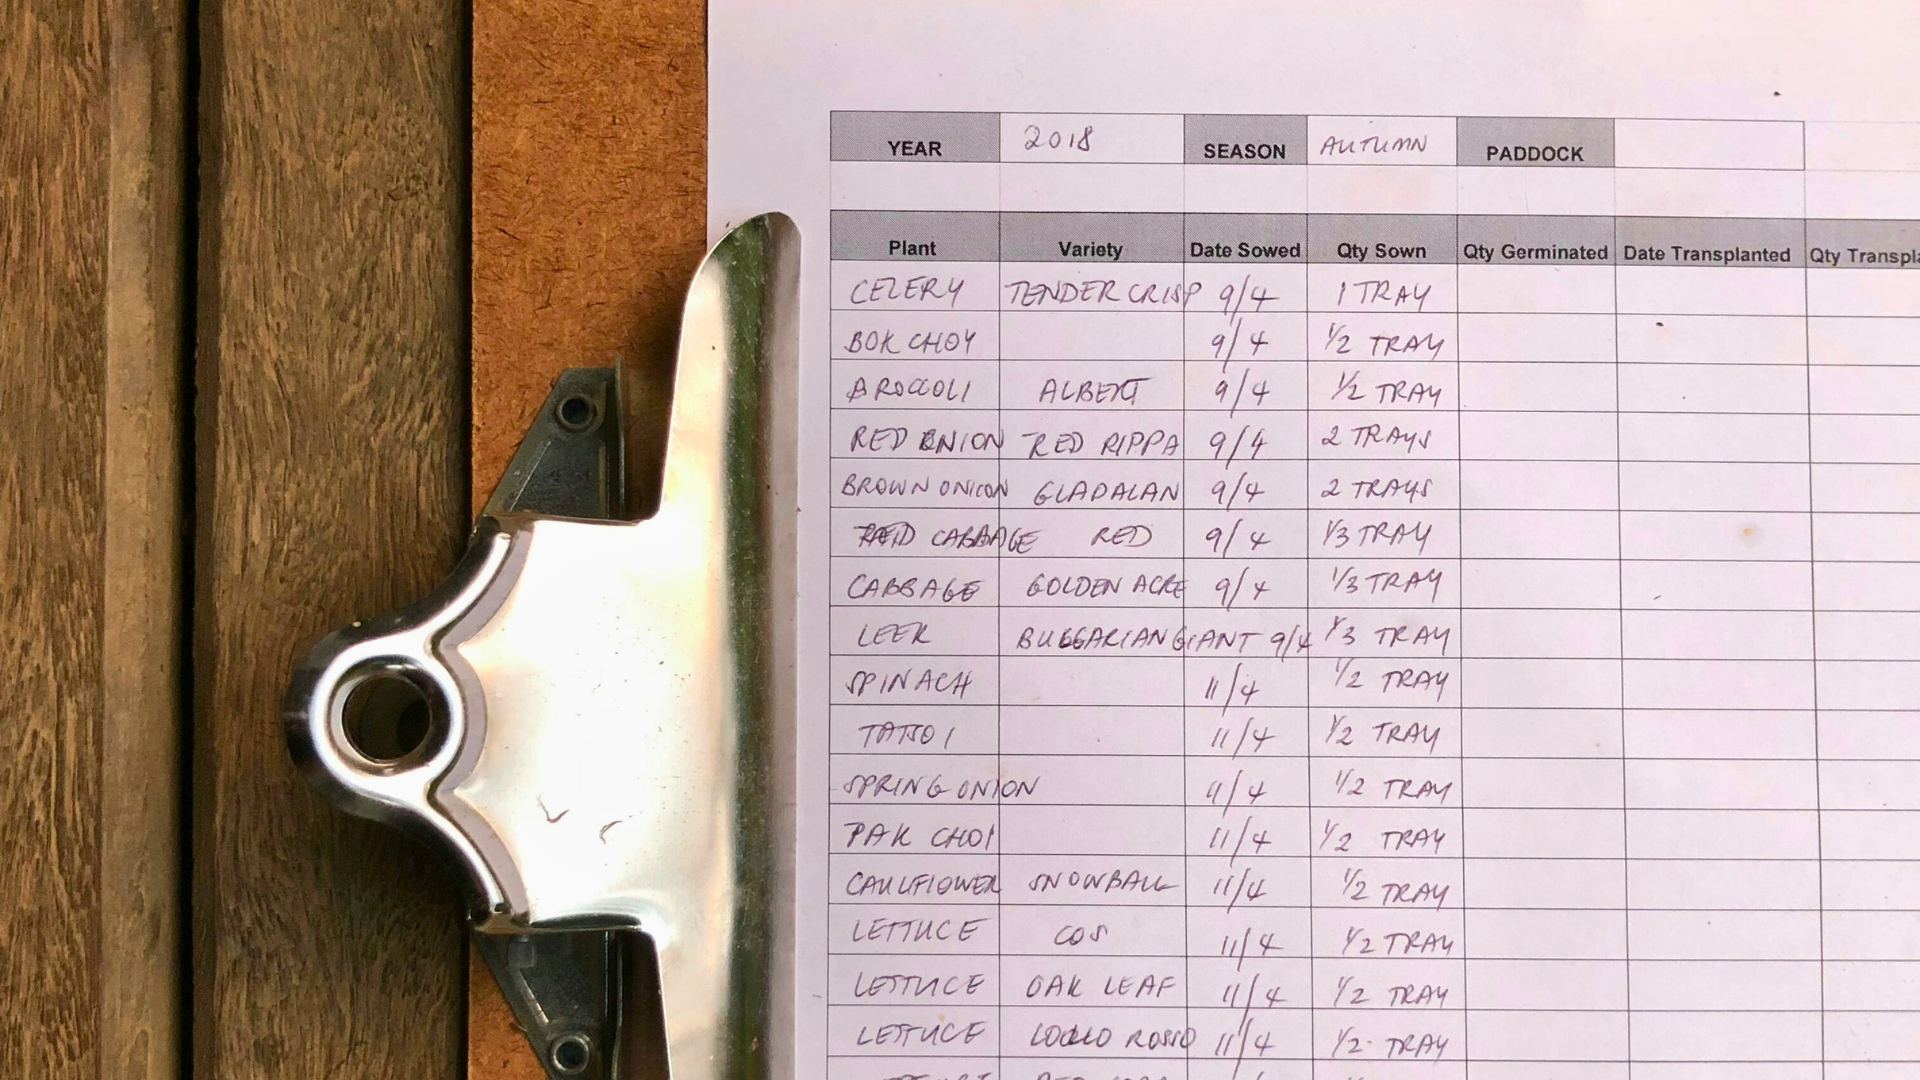 YEAR 2018 SEASON AUTUMN PADDOCK
Plant Variety Date Sowed Qty Sown Qty Germinated Date Transplanted Qty Transpla
CELERY TENDER CRISP 9/4 1 TRAY
BOK CHOY 9/4 1/2 TRAY
BROCCOLI ALBERT 9/4 1/2 TRAY
RED ONION RED RIPPA 9/4 2 TRAYS
BROWN ONION GLADALAN 9/4 2 TRAYS
RED CABBAGE RED 9/4 1/3 TRAY
CABBAGE GOLDEN ACRE 9/4 1/3 TRAY
LEEK BULGARIAN GIANT 9/4 1/3 TRAY
SPINACH 11/4 1/2 TRAY
TATSOI 11/4 1/2 TRAY
SPRING ONION 11/4 1/2 TRAY
PAK CHOI 11/4 1/2 TRAY
CAULFLOWER SNOWBALL 11/4 1/2 TRAY
LETTUCE COS 11/4 1/2 TRAY
LETTUCE OAK LEAF 11/4 1/2 TRAY
LETTUCE LOLLO ROSSO 11/4 1/2 TRAY